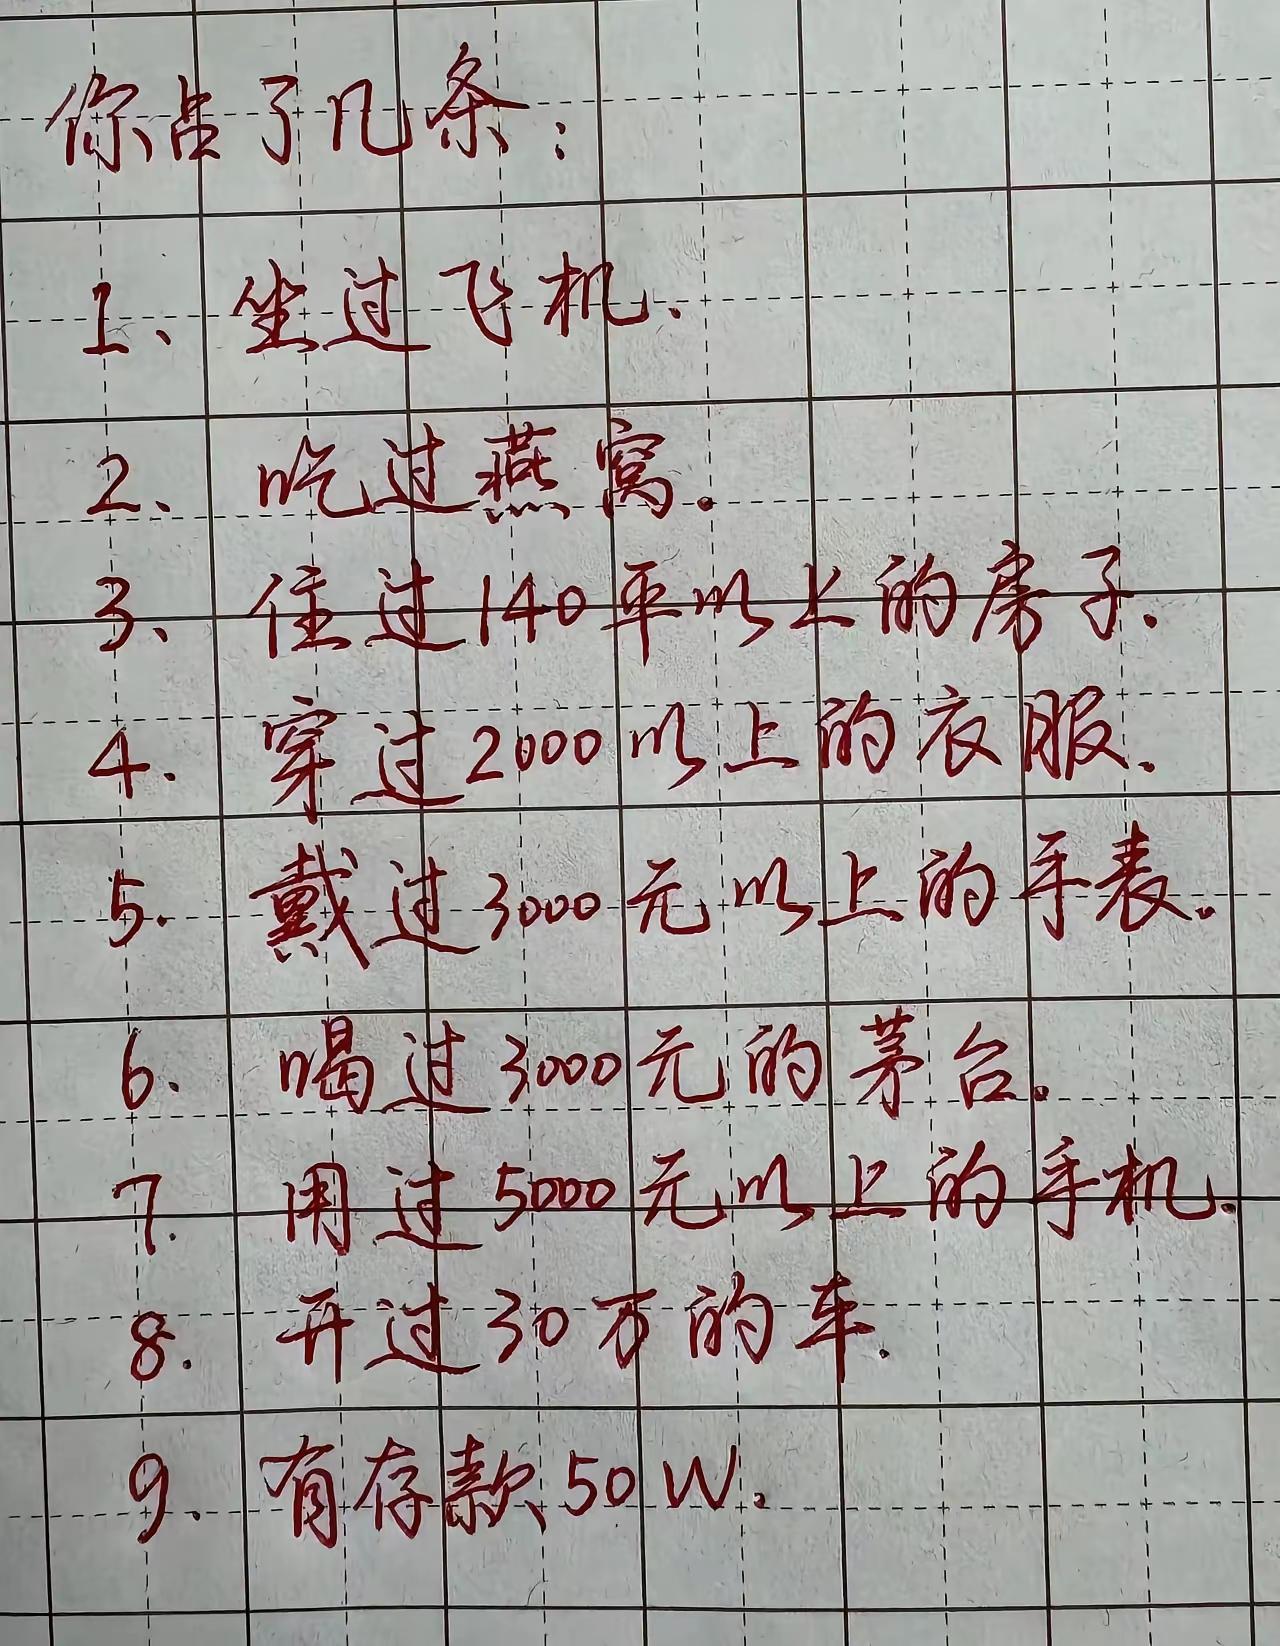 你占了几条:
1、坐过飞机.
2、吃过燕窝.
3、住过140平以上的房子.
4.穿过2000以上的衣服.
5.戴过3000元以上的手表.
6.喝过3000元的茅台.
7.用过5000元以上的手机.
8.开过30万的车.
9.有存款50W.